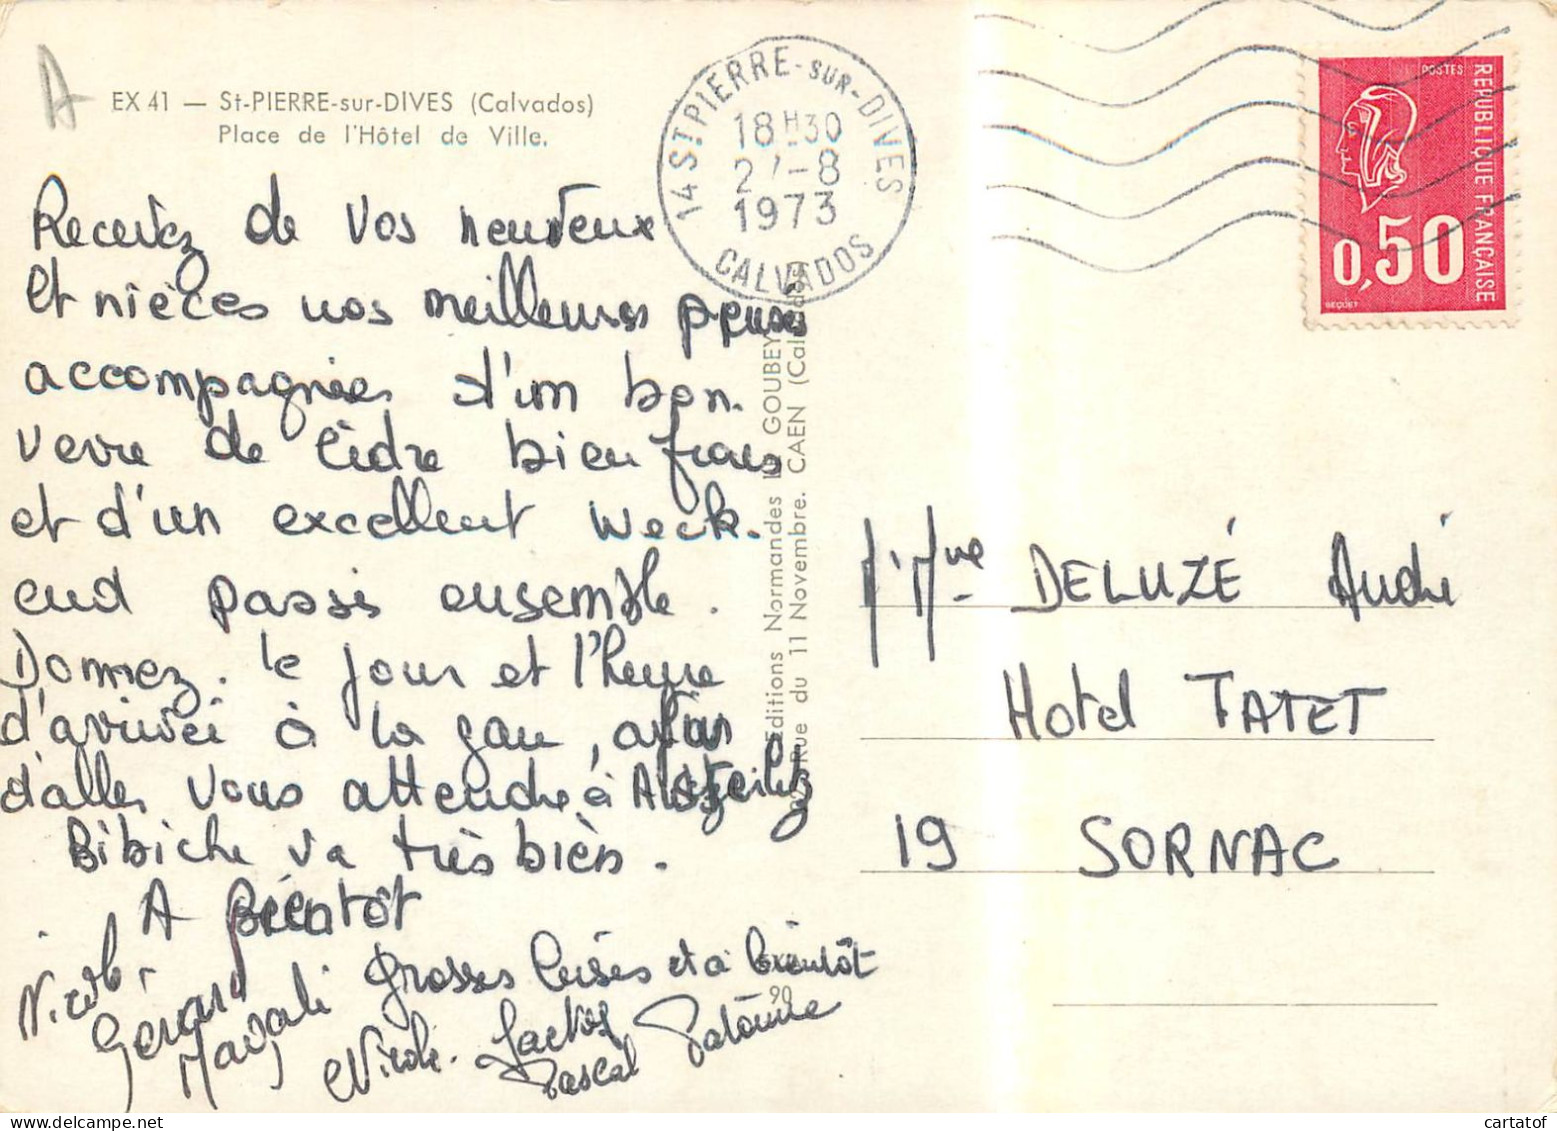 A
EX 41 — St-PIERRE-sur-DIVES (Calvados)
Place de l'Hôtel de Ville.
14 ST PIERRE-SUR-DIVES
18H30
2 -8
1973
CALVADOS
POSTES
REPUBLIQUE FRANÇAISE
0,50
BEQUET
Recevez de vos neuveux
et nièces nos meilleures
accompagnées d'un bon
verre de Cidre bien frais
et d'un excellent Week-
end passés ensemble.
Donnez. le jour et l'heure
d'arrivée à la gare, afin
d'aller vous attendre à Austerlitz
Bibiche va très bien.
A Bientôt
Nicole
Gérard
Magali
Grosses bises et à bientôt
Nicole. Pascal
Editions Normandes GOUBEY
Rue du 11 Novembre. CAEN
90
DELUZÉ André
Hotel TATET
19 SORNAC
cartatof